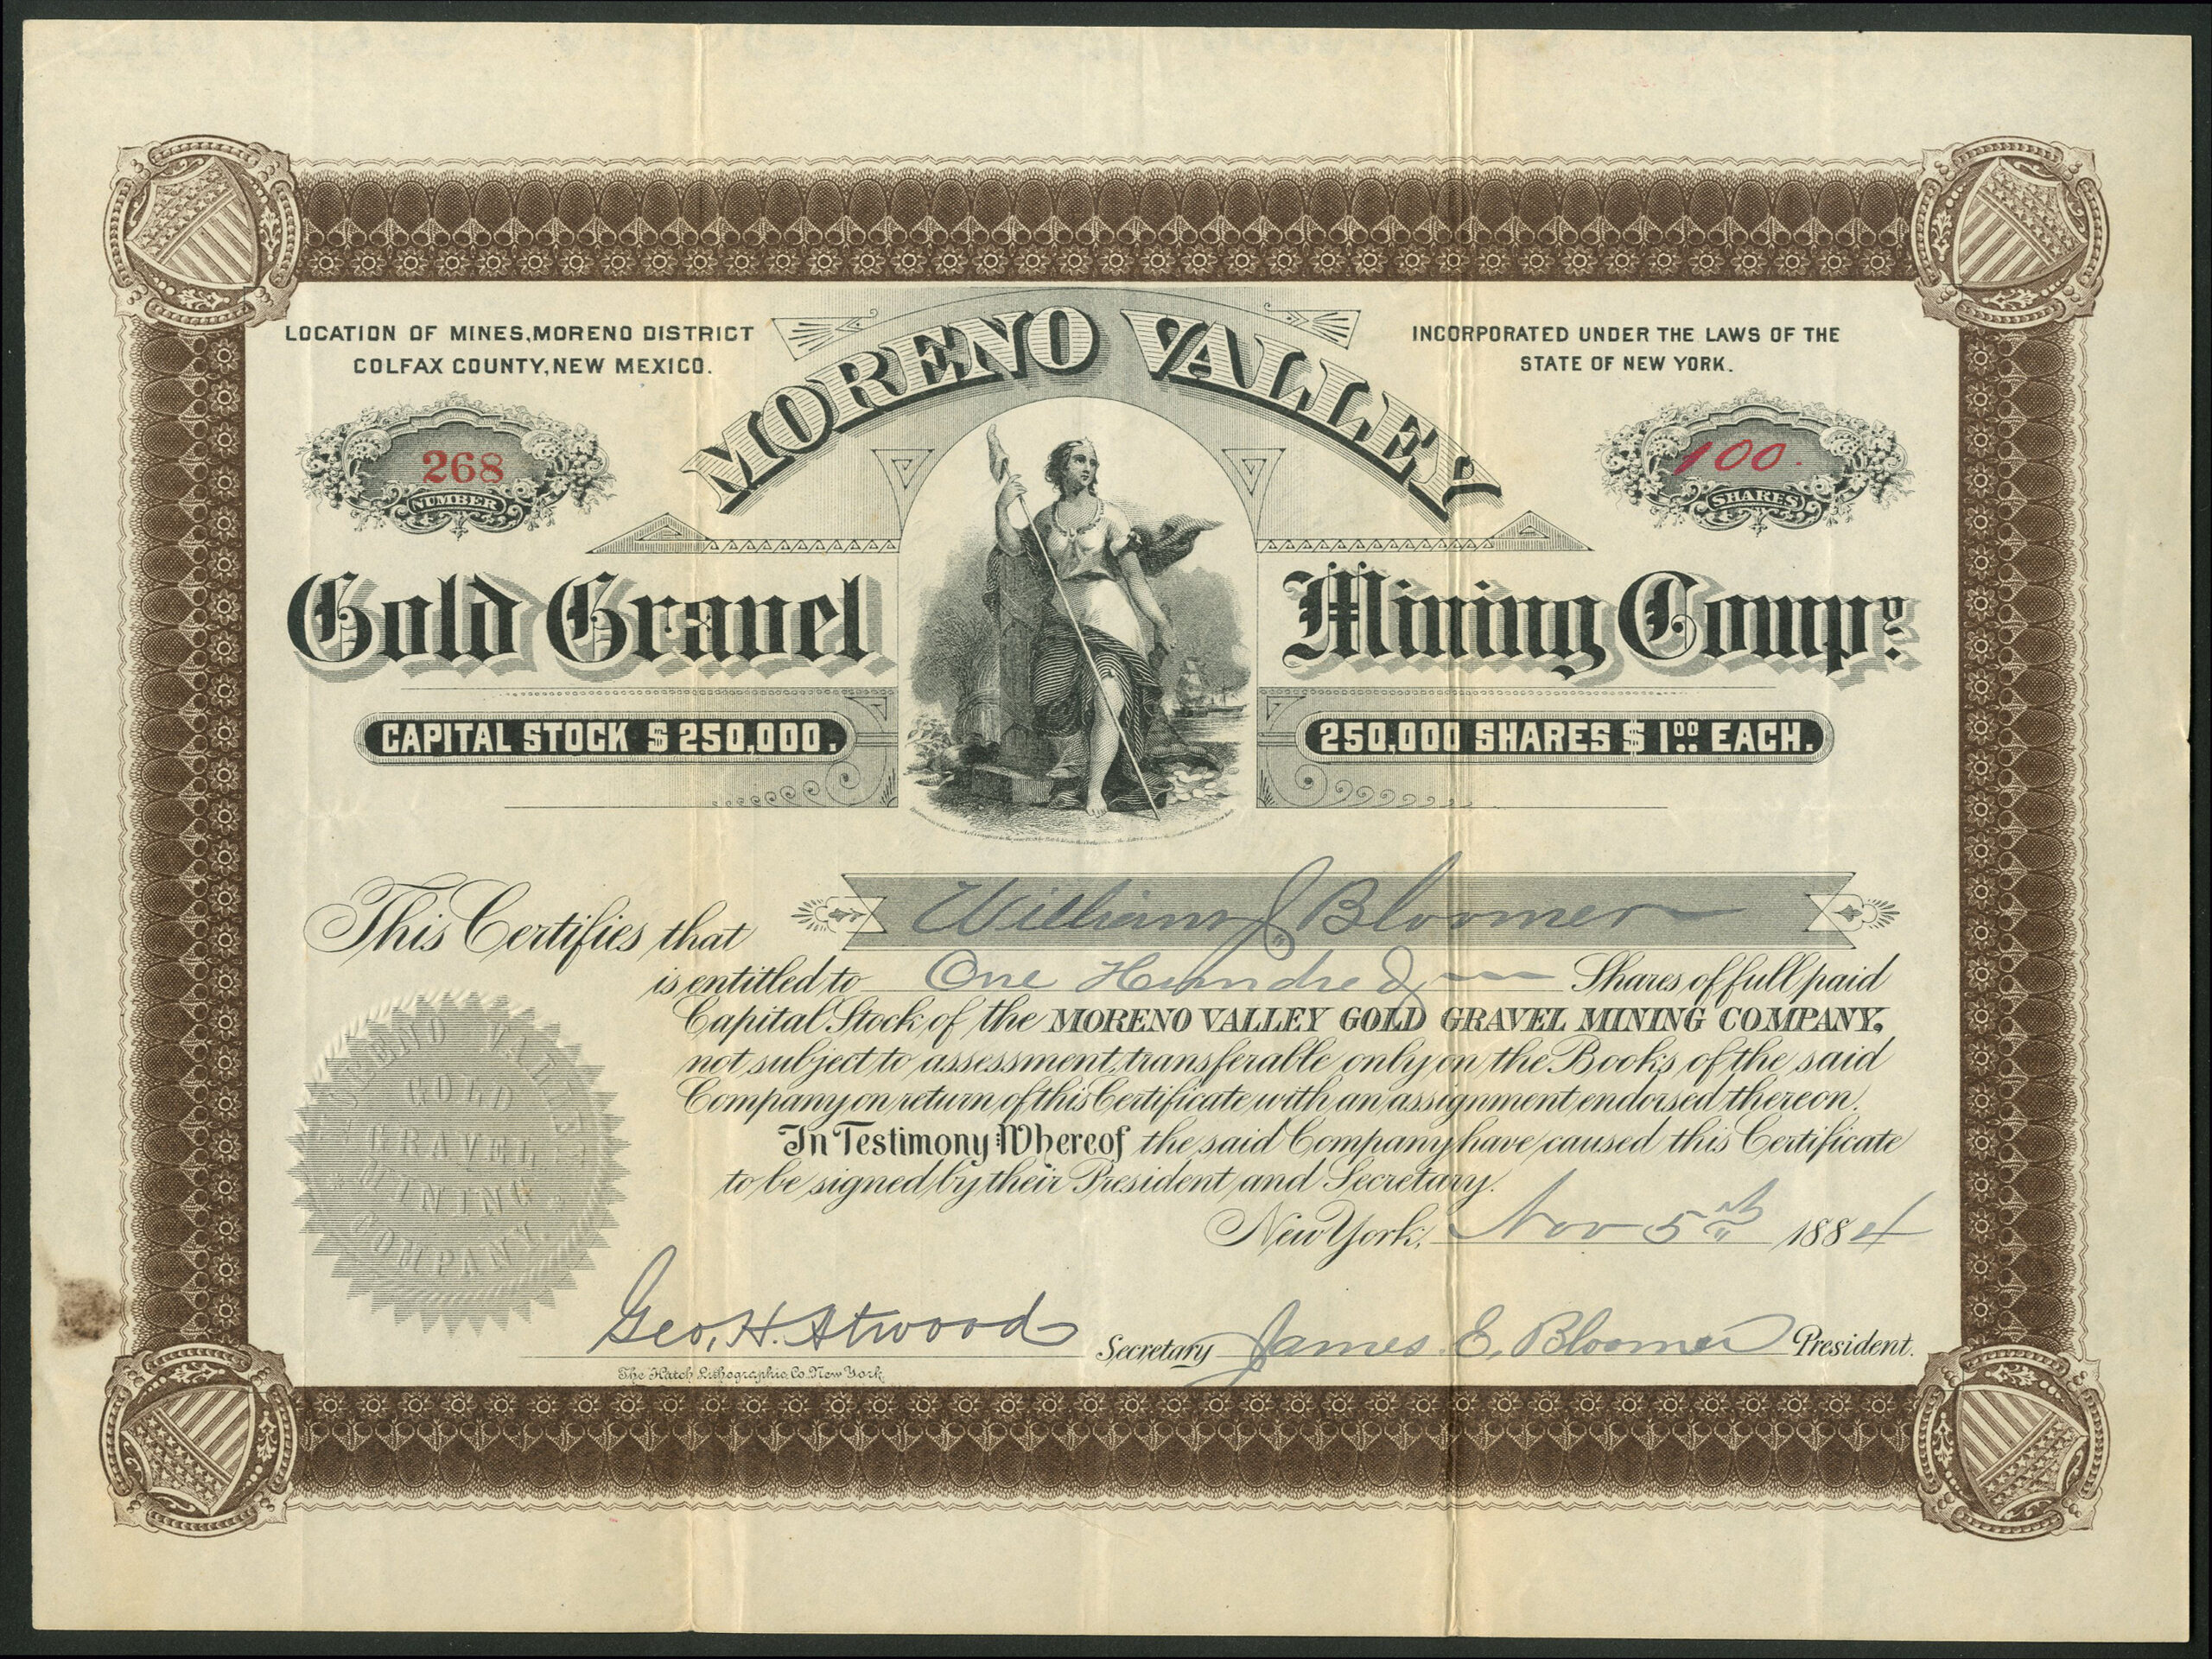 LOCATION OF MINES, MORENO DISTRICT
COLFAX COUNTY, NEW MEXICO.
INCORPORATED UNDER THE LAWS OF THE
STATE OF NEW YORK.
MORENO VALLEY
268
NUMBER
100.
SHARES
Gold Gravel Mining Compy.
CAPITAL STOCK $250,000.
250,000 SHARES $1.00 EACH.
This Certifies that William J. Bloomer
is entitled to One Hundred Shares of full paid
Capital Stock of the MORENO VALLEY GOLD GRAVEL MINING COMPANY,
not subject to assessment, transferable only on the Books of the said
Company on return of this Certificate with an assignment endorsed thereon.
In Testimony Whereof the said Company have caused this Certificate
to be signed by their President and Secretary.
New York, Nov 5th 1884
MORENO VALLEY
GOLD
GRAVEL
MINING
COMPANY
Geo. H. Atwood Secretary James E. Bloomer President.
The Hatch Lithographic Co. New York